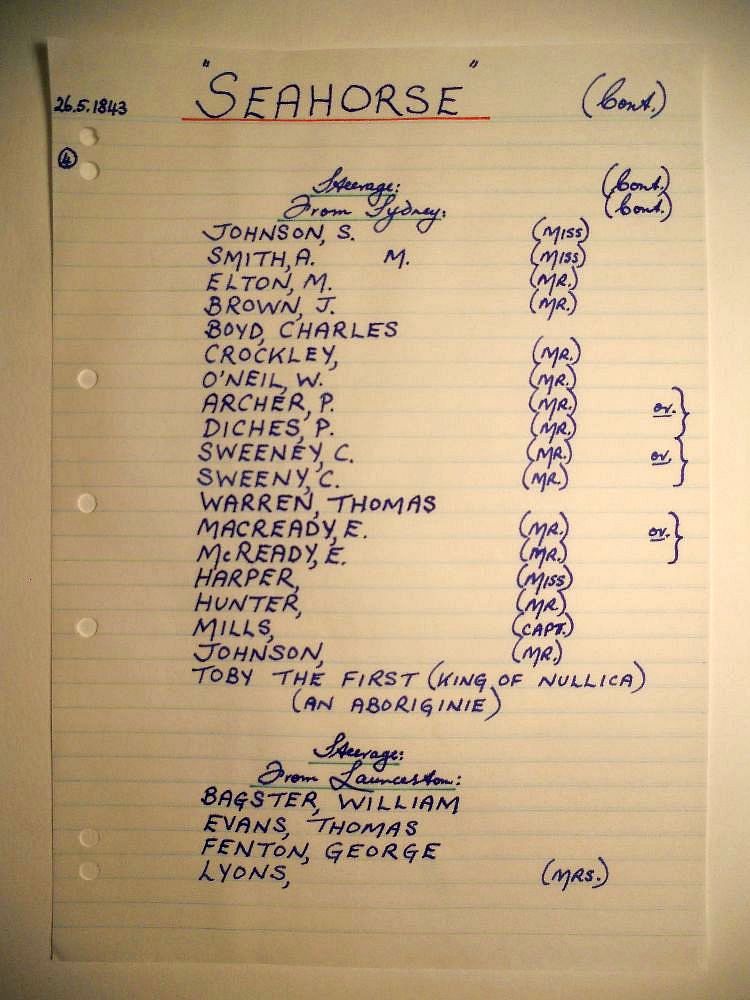 26.5.1843 "SEAHORSE" (Cont.)
4
Steerage: (Cont.)
From Sydney: (Cont.)
JOHNSON, S. (MISS)
SMITH, A. M. (MISS)
ELTON, M. (MR.)
BROWN, J. (MR.)
BOYD, CHARLES
CROCKLEY, (MR.)
O'NEIL, W. (MR.)
ARCHER, P. (MR.) or. }
DICHES, P. (MR.)
SWEENEY, C. (MR.) or. }
SWEENY, C. (MR.)
WARREN, THOMAS
MACREADY, E. (MR.) or. }
McREADY, E. (MR.)
HARPER, (MISS)
HUNTER, (MR.)
MILLS, (CAPT.)
JOHNSON, (MR.)
TOBY THE FIRST (KING OF NULLICA)
(AN ABORIGINIE)
Steerage:
From Launceston:
BAGSTER, WILLIAM
EVANS, THOMAS
FENTON, GEORGE
LYONS, (MRS.)